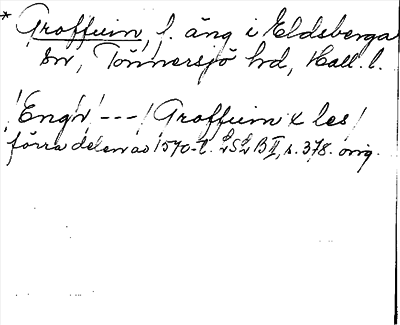 * Groffuin, f. äng i Eldsberga
sn, Tönnersjö hd, Hall. l.
'Engn' --- / Groffuin x les /
förra delen av 1570-t. B II, s. 378. orig.